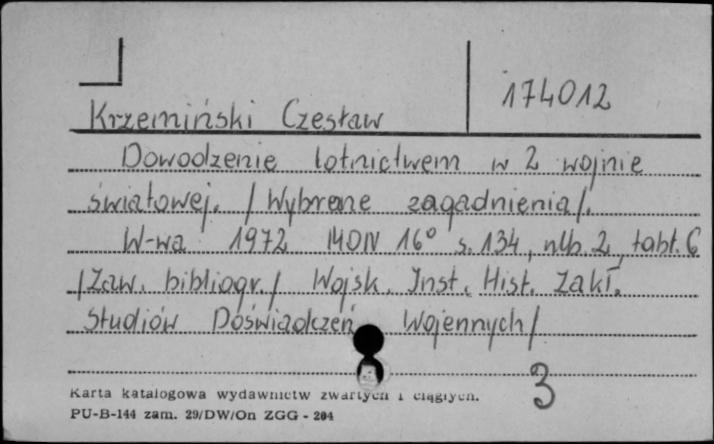 174012
Krzemiński Czesław
Dowodzenie lotnictwem w 2 wojnie
światowej. /Wybrane zagadnienia/.
W-wa 1972 MON 16° s. 134, nlb. 2, tabl. 6
/Zaw. bibliogr./ Wojsk. Inst. Hist. Zakł.
Studiów Doświadczeń Wojennych/
3
Karta katalogowa wydawnictw zwartych i ciągłych.
PU-B-144 zam. 29/DW/On ZGG - 204